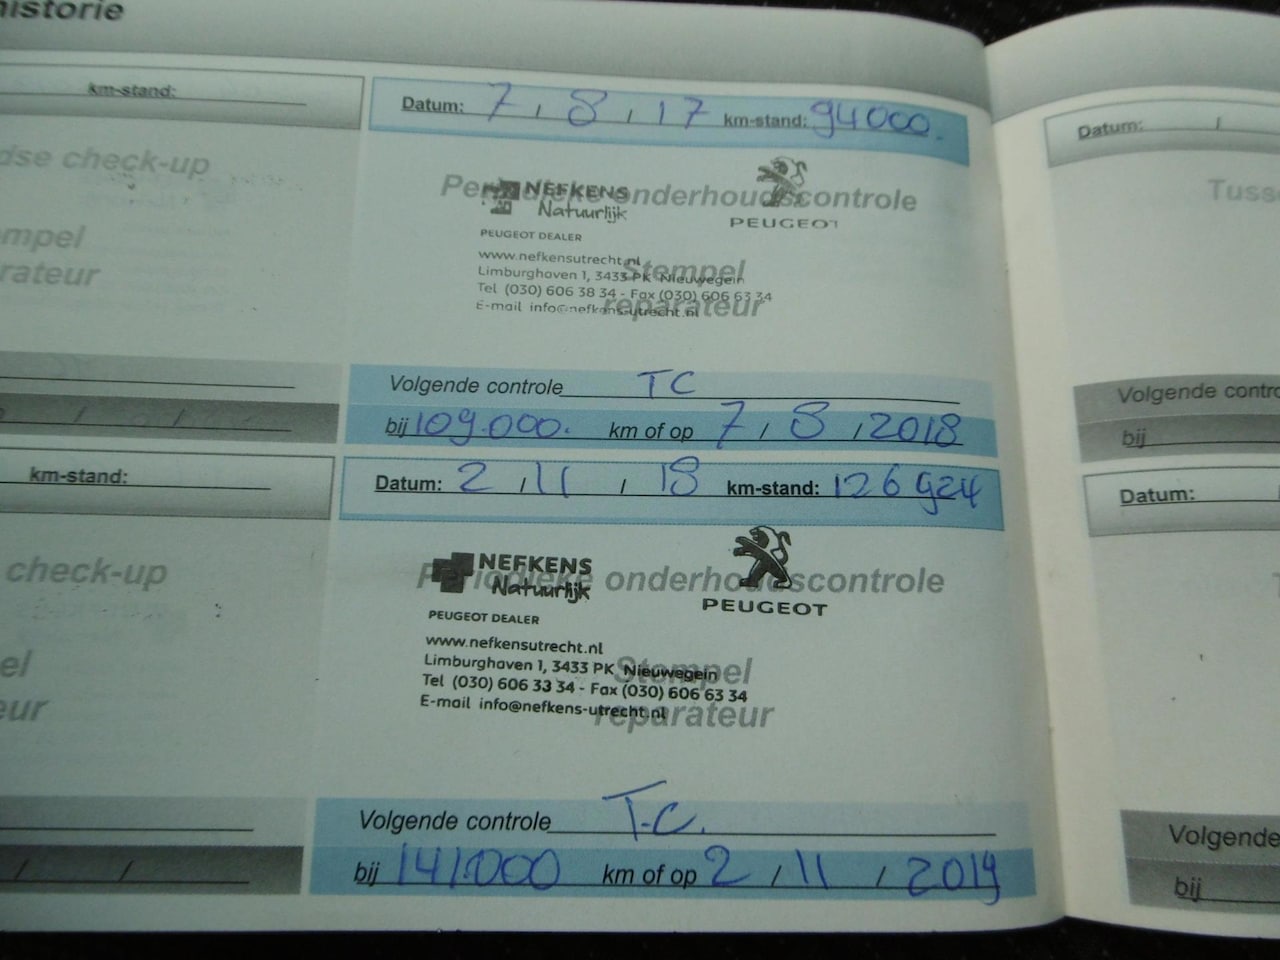 historie
km-stand:
dse check-up
mpel
rateur
km-stand:
check-up
el
eur
Datum: 7 / 8 / 17 km-stand: 94000.
Periodieke onderhoudscontrole
NEFKENS
Natuurlijk
PEUGEOT
PEUGEOT DEALER
www.nefkensutrecht.nl
Stempel
Limburghaven 1, 3433 PK Nieuwegein
Tel (030) 606 38 34 - Fax (030) 606 63 34
reparateur
E-mail info@nefkens-utrecht.nl
Volgende controle TC
bij 109.000. km of op 7 / 8 / 2018
Datum: 2 / 11 / 18 km-stand: 126924
NEFKENS
Periodieke onderhoudscontrole
Natuurlijk
PEUGEOT
PEUGEOT DEALER
www.nefkensutrecht.nl
Limburghaven 1, 3433 PK Nieuwegein
Stempel
Tel (030) 606 33 34 - Fax (030) 606 63 34
E-mail info@nefkens-utrecht.nl
reparateur
Volgende controle T.C.
bij 141.000 km of op 2 / 11 / 2019
Datum: /
Tuss
Volgende contro
bij
Datum:
Volgende
bij